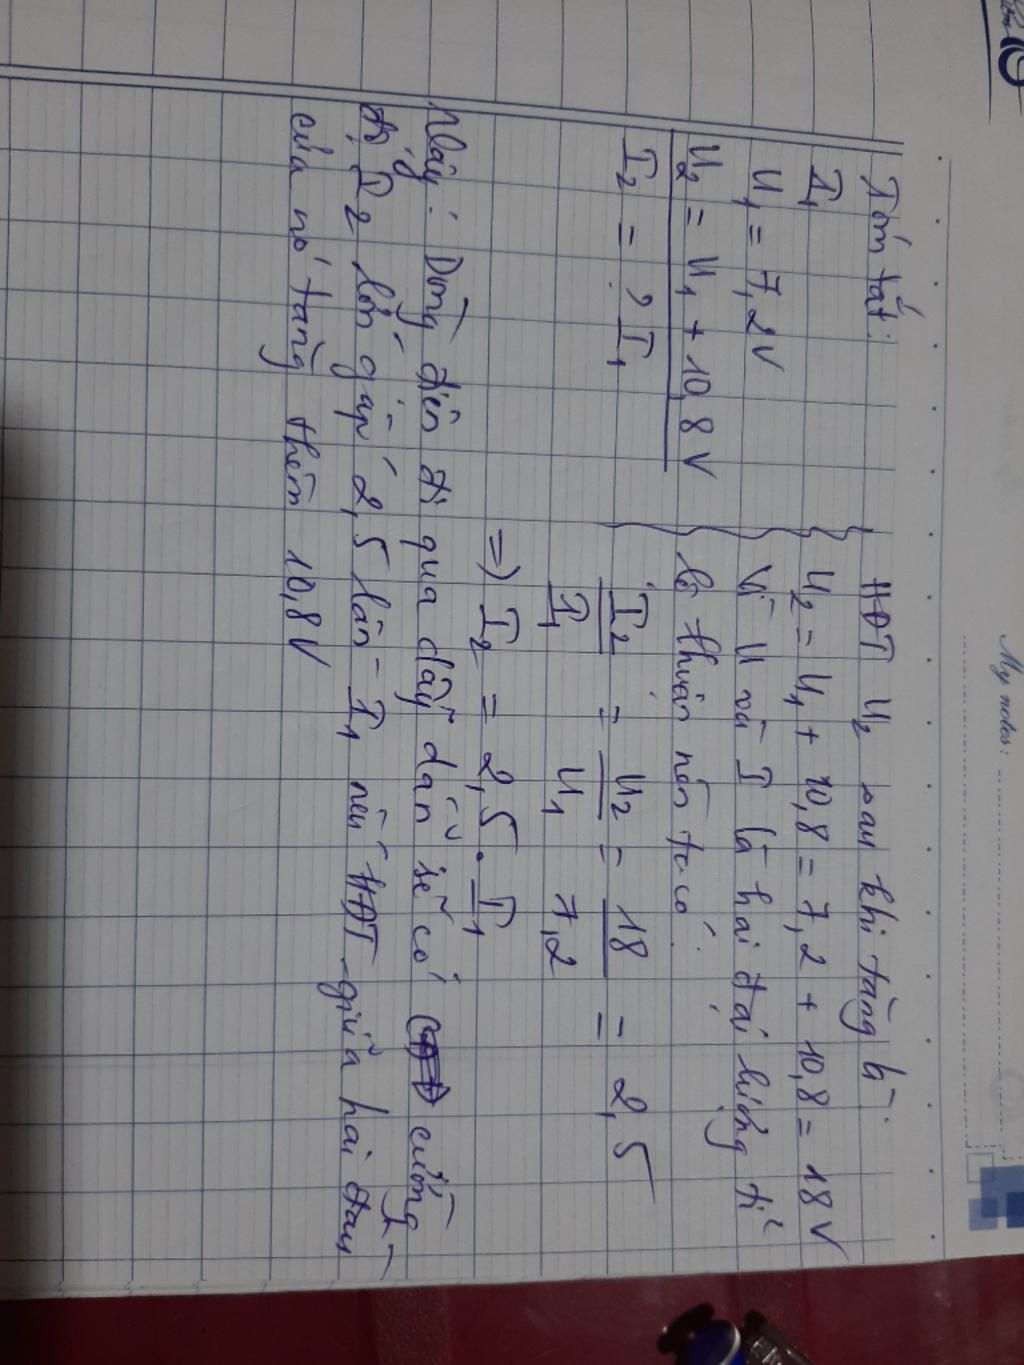 My notes:
Tóm tắt:
I₁
U₁ = 7,2V
U₂ = U₁ + 10,8V
I₂ = ? I₁
HĐT U₂ sau khi tăng là:
U₂ = U₁ + 10,8 = 7,2 + 10,8 = 18V
Vì U và I là hai đại lượng tỉ
lệ thuận nên ta có:
I₂/I₁ = U₂/U₁ = 18/7,2 = 2,5
=> I₂ = 2,5 . I₁
Vậy: Dòng điện đi qua dây dẫn sẽ có cường
độ I₂ lớn gấp 2,5 lần I₁ nếu HĐT giữa hai đầu
của nó tăng thêm 10,8V